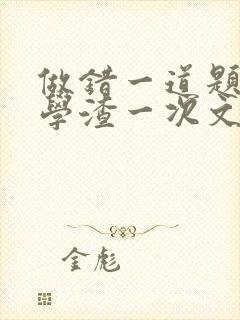 做错一道题
學渣一次文
金彪